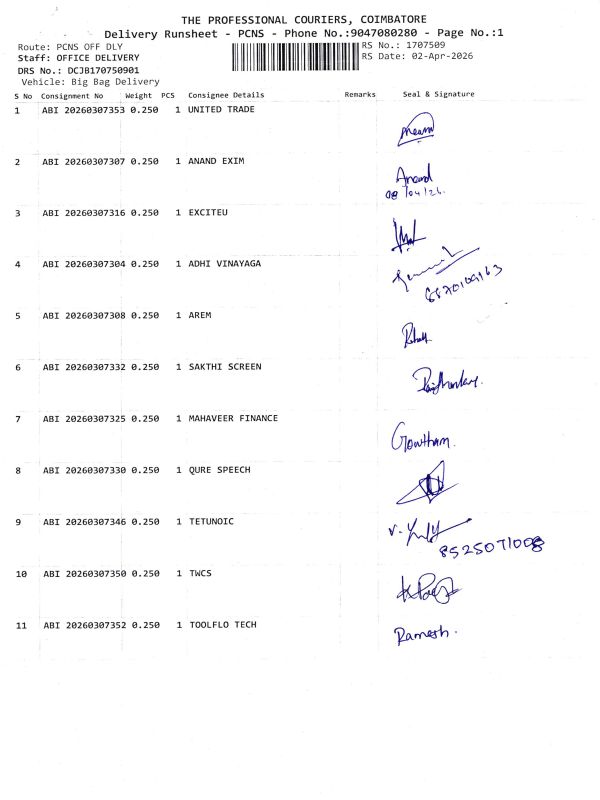 THE PROFESSIONAL COURIERS, COIMBATORE
Delivery Runsheet - PCNS - Phone No.:9047080280 - Page No.:1
Route: PCNS OFF DLY
RS No.: 1707509
Staff: OFFICE DELIVERY
RS Date: 02-Apr-2026
DRS No.: DCJB170750901
Vehicle: Big Bag Delivery
S No Consignment No Weight PCS Consignee Details Remarks Seal & Signature
1 ABI 20260307353 0.250 1 UNITED TRADE
2 ABI 20260307307 0.250 1 ANAND EXIM Anand
08/04/26.
3 ABI 20260307316 0.250 1 EXCITEU
4 ABI 20260307304 0.250 1 ADHI VINAYAGA
5 ABI 20260307308 0.250 1 AREM
6 ABI 20260307332 0.250 1 SAKTHI SCREEN
7 ABI 20260307325 0.250 1 MAHAVEER FINANCE
Gowtham.
8 ABI 20260307330 0.250 1 QURE SPEECH
9 ABI 20260307346 0.250 1 TETUNOIC
8525071008
10 ABI 20260307350 0.250 1 TWCS
11 ABI 20260307352 0.250 1 TOOLFLO TECH
Ramesh.